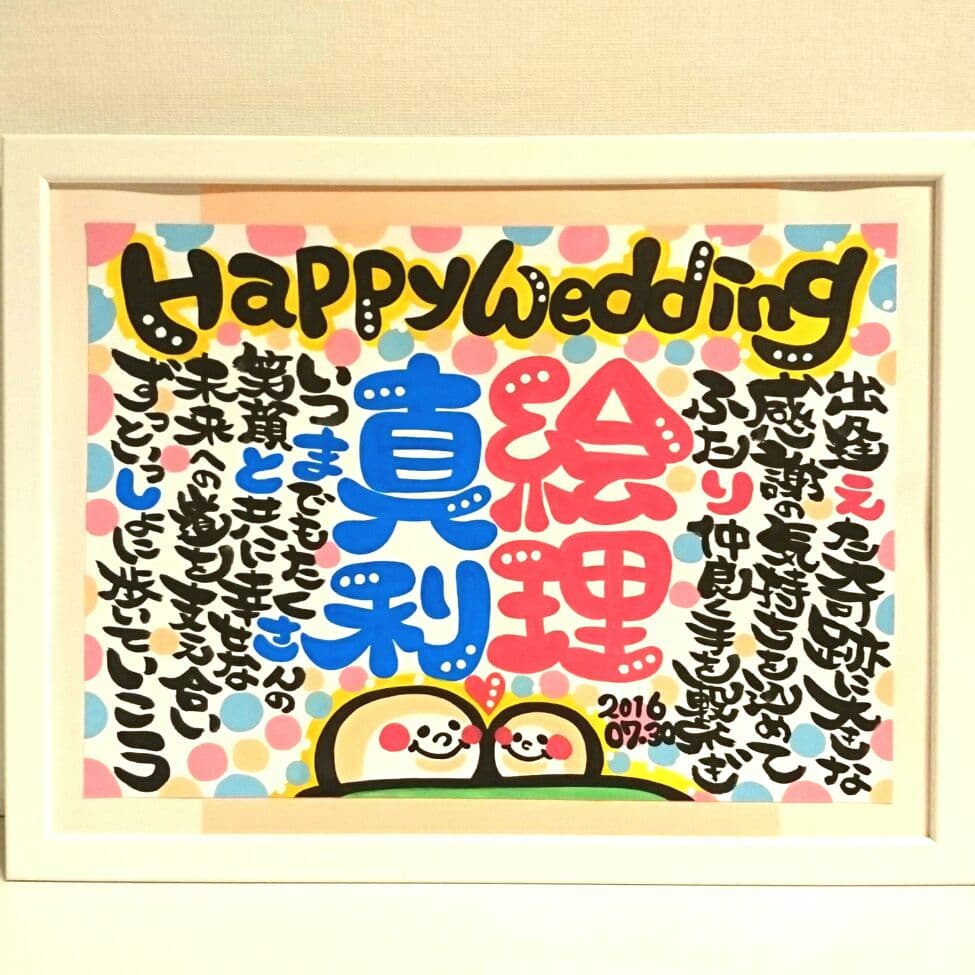 Happy Wedding
出逢えた奇跡に大きな
感謝の気持ちを込めて
ふたり仲良く手を繋ぎ
絵理
真利
いつまでもたくさんの
笑顔と共に幸せな
未来への道を支え合い
ずっといっしょに歩いていこう
2016
07.30